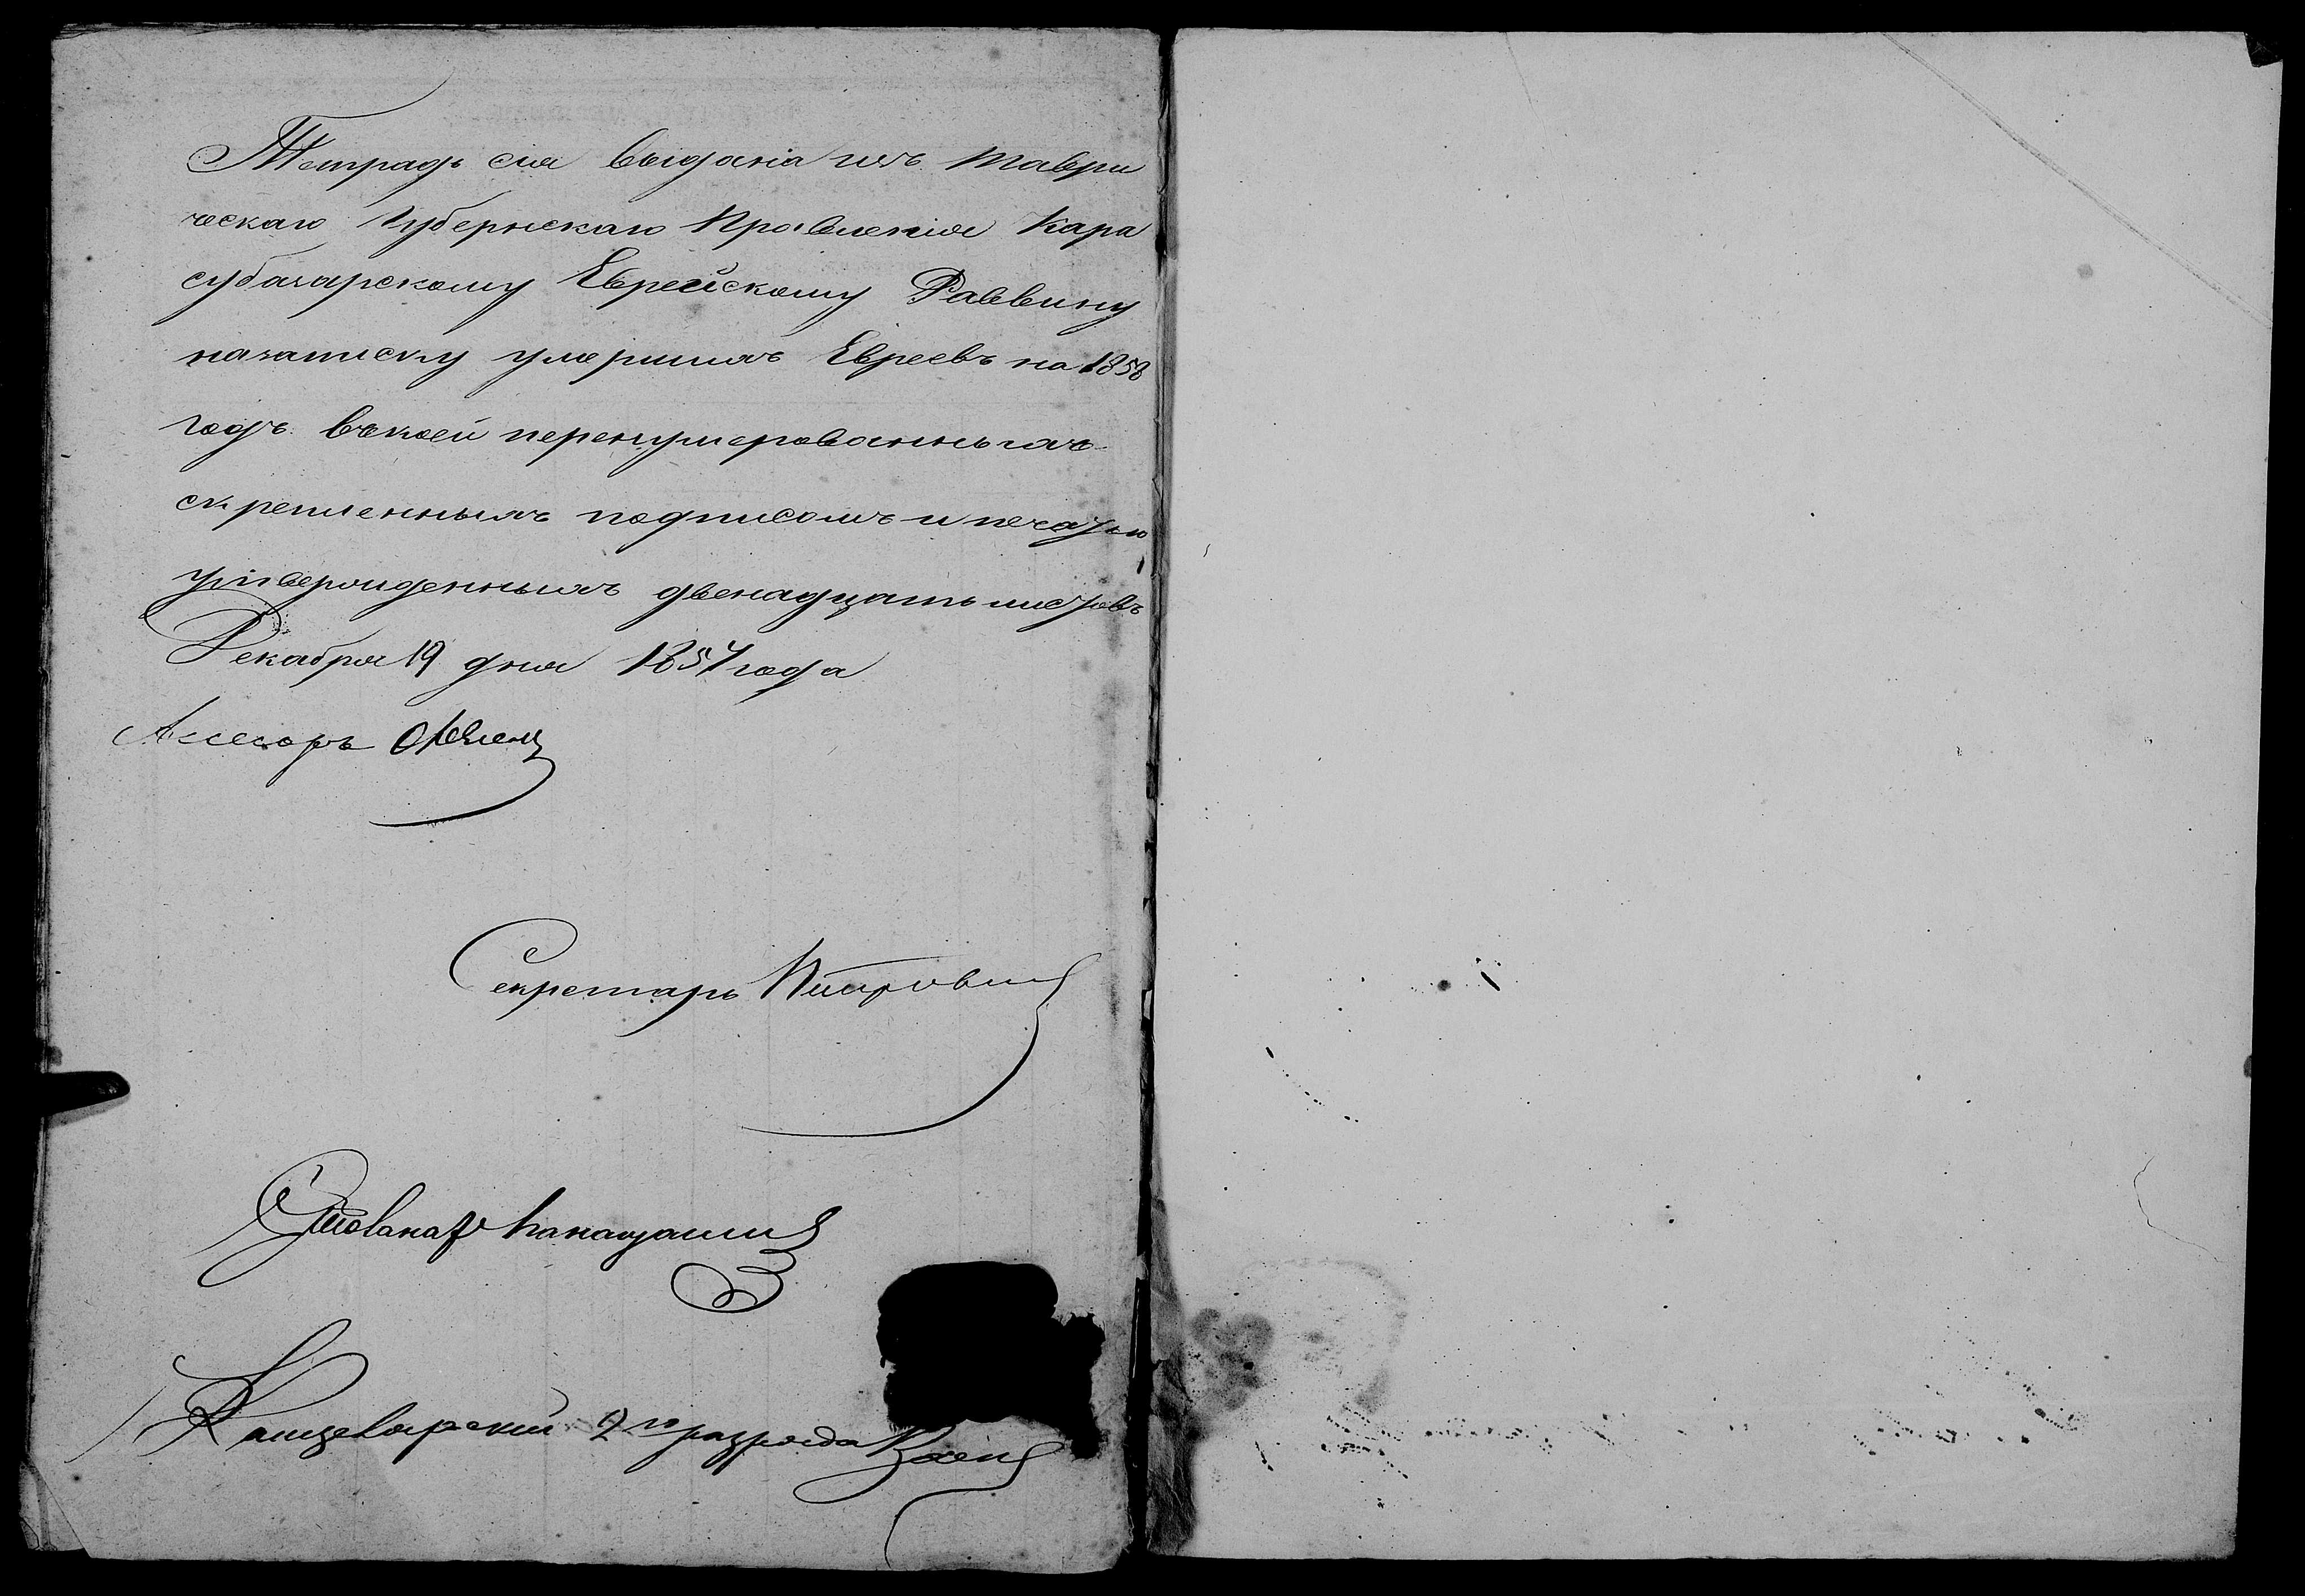 Тетрадь сія выдана изъ Таври
ческаго Губернскаго Правленія Кара
субазарскому Еврейскому Раввину
на записку умершихъ Евреевъ на 1858
годъ въ коей перенумерованныхъ
скрепленныхъ подписомъ и печатью
утвержденныхъ двенадцать листовъ
Декабря 19 дня 1857 года
Ассесоръ
Секретарь
Канцелярскій 2го разряда